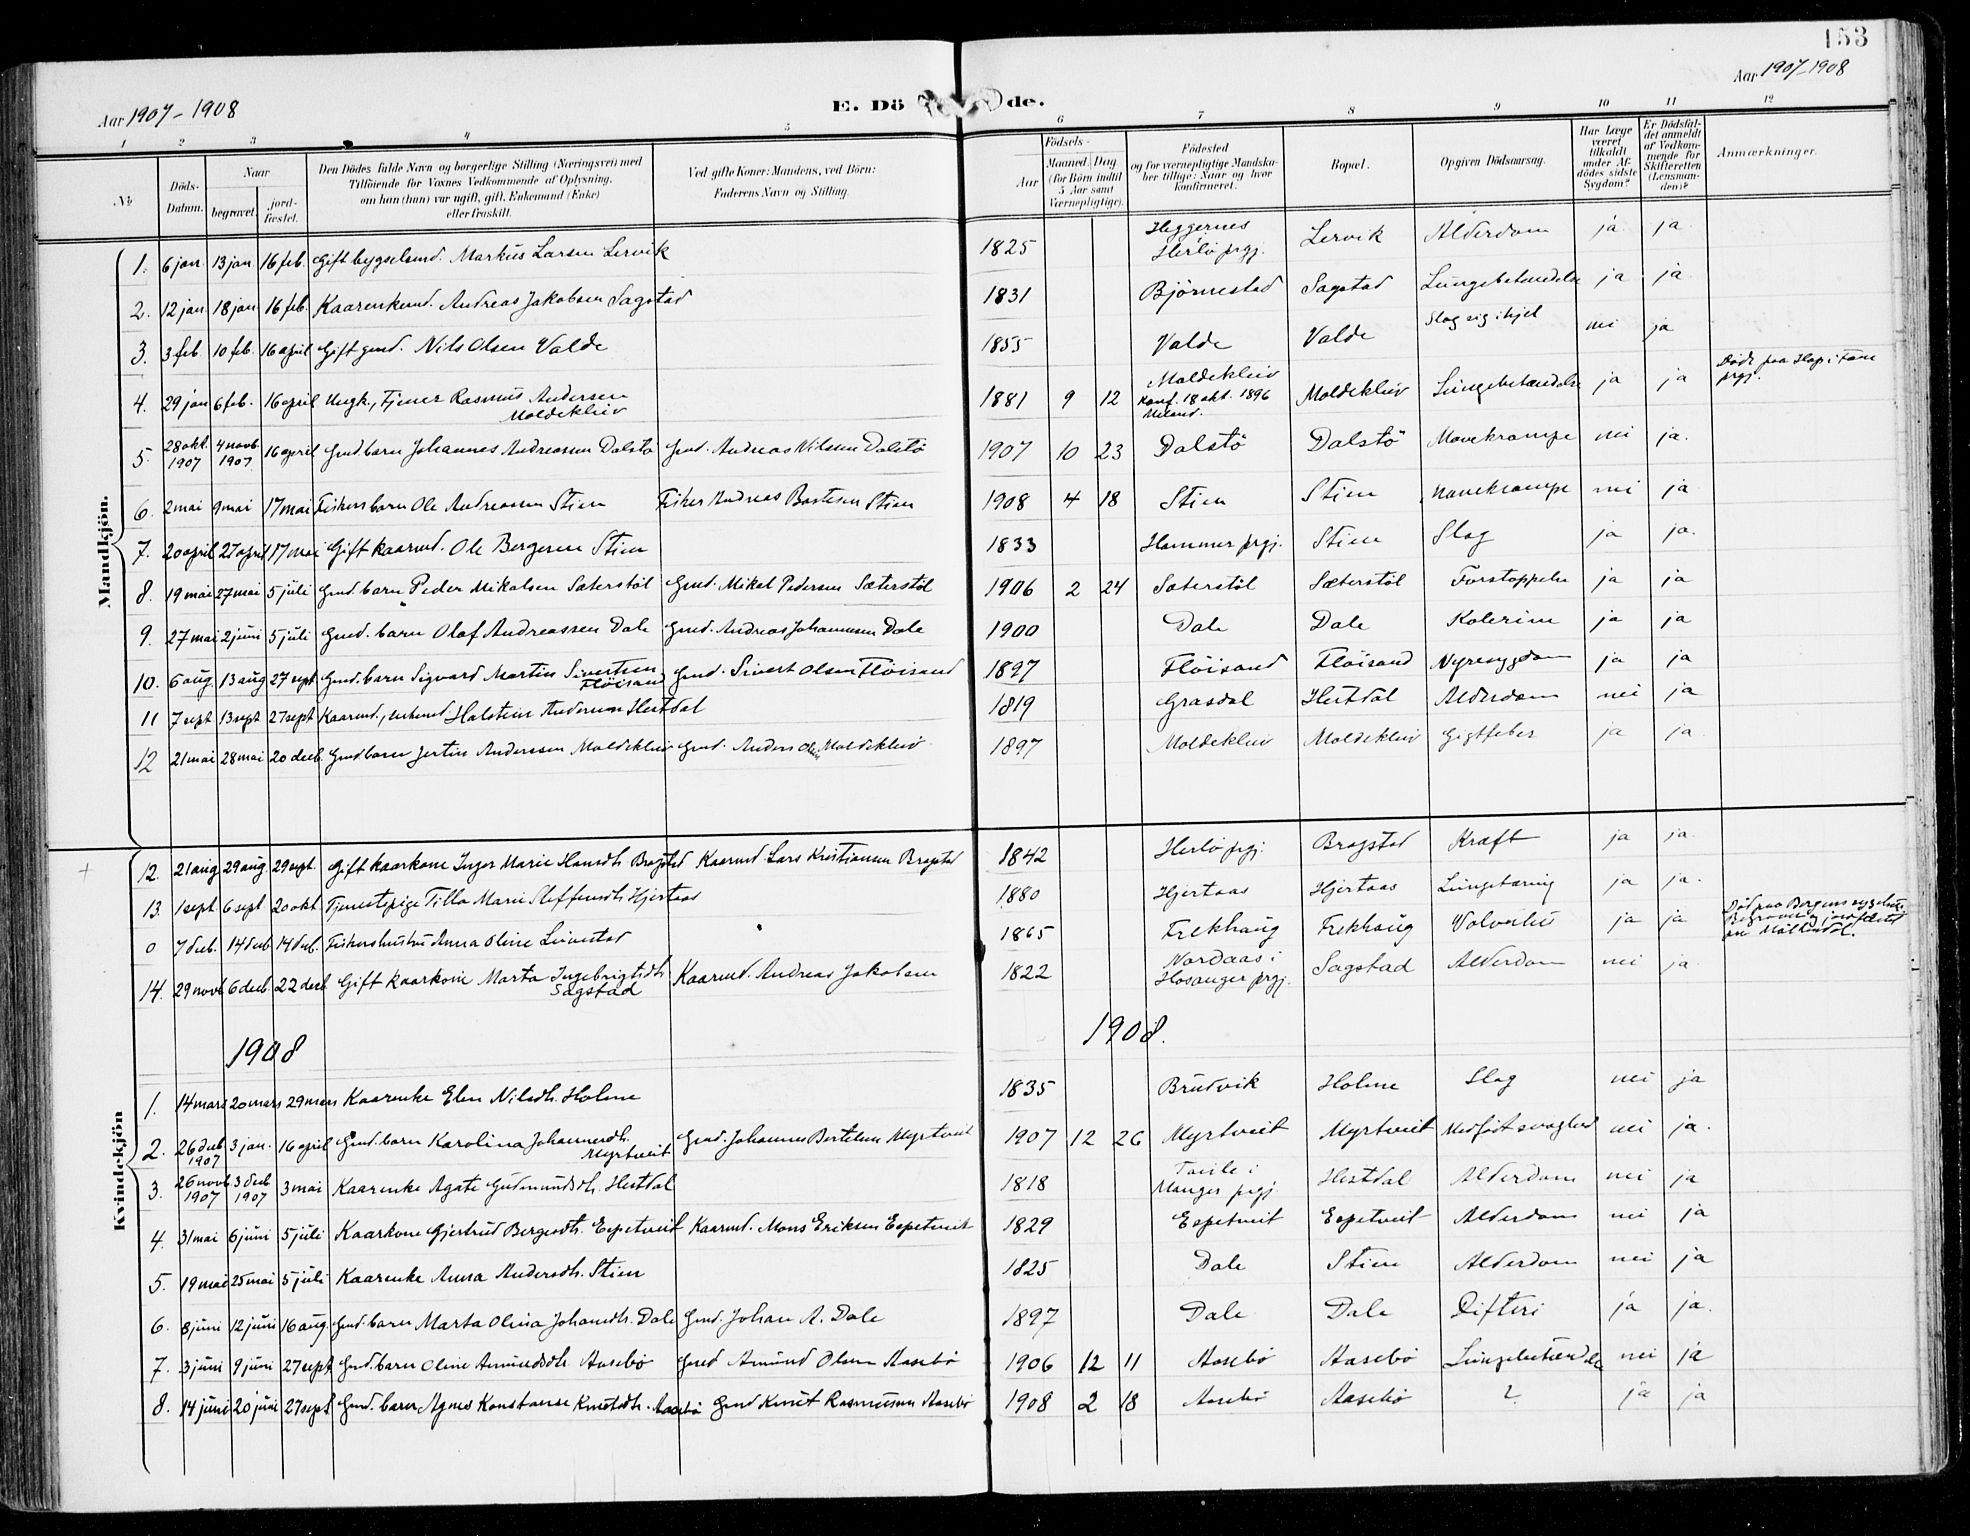 153
Aar 1907-1908
Aar 1907-1908
E. Dö de.
1 2 3 4 5 6 7 8 9 10 11 12
№
Döds-Datum.
Naar
begravet.
jord-fæstet.
Den Dödes fulde Navn og borgerlige Stilling (Næringsvei) med
Tilföiende for Voxnes Vedkommende af Oplysning,
om han (hun) var ugift, gift, Enkemand (Enke)
eller fraskilt.
Ved gifte Koner: Mandens, ved Börn:
Faderens Navn og Stilling.
Födsels-
Aar
Maaned. Dag.
(for Börn indtil
5 Aar samt
Værnepligtige).
Födested
og for værnepligtige Mandska-
ber tillige: Naar og hvor
konfirmeret.
Bopæl.
Opgiven Dödsaarsag.
Har Læge
været
tilkaldt
under Af-
dödes sidste
Sygdom?
Er Dödsfal-
det anmeldt
af Vedkom-
mende for
Skifteretten
(Lensman-
den)?
Anmærkninger.
Mandkjön.
1. 6 jan 13 jan 16 feb. Gift bygselmd. Markus Larsen Lervik 1825 Heggernes Herlö prgj. Lervik Alderdom ja ja
2. 12 jan 18 jan 16 feb. Kaarenkemd. Andreas Jakobsen Sagstad 1831 Björnestad Sagstad Lungebetændelse ja ja
3. 3 feb. 10 feb. 16 april Gift gmd. Nils Olsen Valde 1855 Valde Valde Slog sig ihjel nei ja
4. 29 jan 6 feb. 16 april Ungk., Tjener Rasmus Andersen Moldekleiv 1881 9 12 Moldekleiv Konf. 18 okt. 1896 Meland. Moldekleiv Lungebetændelse ja ja Död paa Hop i Fane prgj.
5. 28 okt. 1907 4 novb. 1907 16 april Gmd barn Johannes Andreassen Dalstö Gmd. Andreas Nilsen Dalstö 1907 10 23 Dalstö Dalstö Mavekrampe nei ja.
6. 2 mai 9 mai 17 mai Fiskers barn Ole Andreassen Stien Fisker Andreas Bastesen Stien 1908 4 18 Stien Stien Mavekrampe nei ja
7. 20 april 27 april 17 mai Gift kaarmd. Ole Bergesen Stien 1833 Hammer prgj. Stien Slag ja ja.
8. 19 mai 27 mai 5 juli Gmd. barn Peder Mikalsen Sæterstöl Gmd. Mikal Pedersen Sæterstöl 1906 2 24 Sæterstöl Sæterstöl Forstoppelse ja ja
9. 27 mai 2 juni 5 juli Gmd. barn Olaf Andreassen Dale Gmd. Andreas Johannesen Dale 1900 Dale Dale Kolerine ja ja
10. 6 aug. 13 aug 27 sept Gmd. barn Sigvard Martin Sivertsen Flöisand Gmd. Sivert Olsen Flöisand 1897 Flöisand Flöisand Nyresygdom ja ja
11 7 sept 13 sept 27 sept Kaarmd., enkemd. Halstein Andersen Hestdal 1819 Grasdal Hestdal Alderdom nei ja
12 21 mai 28 mai 20 decb. Gmd barn Jertin Anderssen Moldekleiv Gmd. Anders Olsen Moldekleiv 1897 Moldekleiv Moldekleiv Gigtfeber ja ja
Kvindekjön
12. 21 aug 29 aug. 29 sept. Gift kaarkone Inger Marie Hansdtr. Bragstad Kaarmd. Lars Kristiansen Bragstad 1842 Herlö prgj. Bragstad Kræft ja ja.
13. 1 sept 6 sept 20 okt. Tjenestepige Tilla Marie Steffensdtr. Hjertaas 1880 Hjertaas Hjertaas Lungetæring ja ja.
0 7 decb. 14 decb. 14 decb. Fiskershustru Anna Oline 1865 Frekhaug Frekhaug ja ja Död paa Bergens sygehus. Begraven og jordfæstet
14. 29 novb 6 decb. 22 decb Gift kaarkone Marta Ingebrigtsdtr. Sagstad Kaarmd. Andreas Jakobsen 1822 Nordaas i Hosanger prgj. Sagstad Alderdom nei ja
1908 1908.
1. 14 mars 20 mars 29 mars Kaarenke Elen Nilsdtr. Holme 1835 Brudvik Holme Slag nei ja
2. 26 decb 1907 3 jan. 16 april Gmd. barn Karolina Johannesdtr. Myrtveit Gmd. Johannes Bertelsen Myrtveit 1907 12 26 Myrtveit Myrtveit Medfödt svaghed nei ja.
3. 26 novb. 1907 3 decb 1907 3 mai Kaarenke Agate Gudmundsdtr. Hestdal 1818 i Manger prgj. Hestdal Alderdom nei ja
4. 31 mai 6 juni 5 juli Kaarkone Gjertrud Bergesdtr. Espetveit Kaarmd. Mons Eriksen Espetveit 1829 Espetveit Espetveit Alderdom nei ja
5. 19 mai 25 mai 5 juli Kaarenke Anna Andersdtr. Stien 1825 Dale Stien Alderdom nei ja
6. 8 juni 12 juni 16 aug. Gmd. barn Marta Olina Johansdtr. Dale Gmd. Johan A. Dale 1897 Dale Dale Difteri ja ja.
7. 3 juni 9 juni 27 sept Gmd. barn Oline Amundsdtr. Aasebö Gmd Amund Olsen Aasebö 1906 12 11 Aasebö Aasebö Lungebetændelse nei ja
8. 14 juni 20 juni 27 sept Gmd. barn Agnes Konstanse Knutsdtr. Aasebö Gmd Knut Rasmussen Aasebö 1908 2 18 Aasebö Aasebö ? ja ja